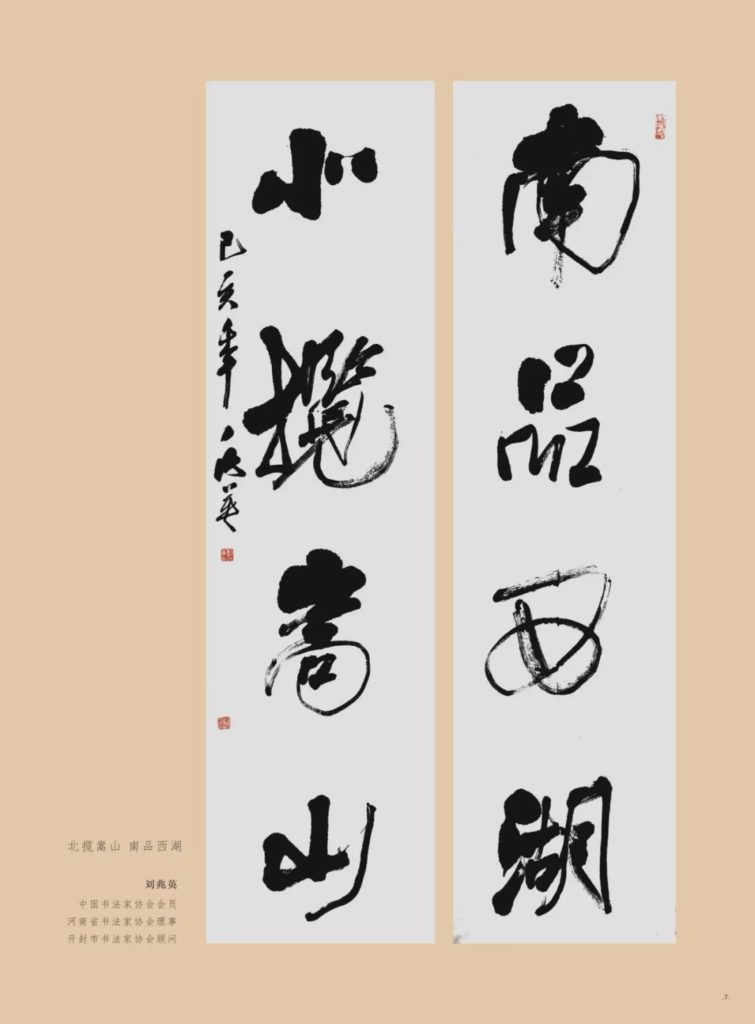 南品西湖
北攬嵩山
己亥年兆英
北揽嵩山 南品西湖
刘兆英
中国书法家协会会员
河南省书法家协会理事
开封市书法家协会顾问
.7.